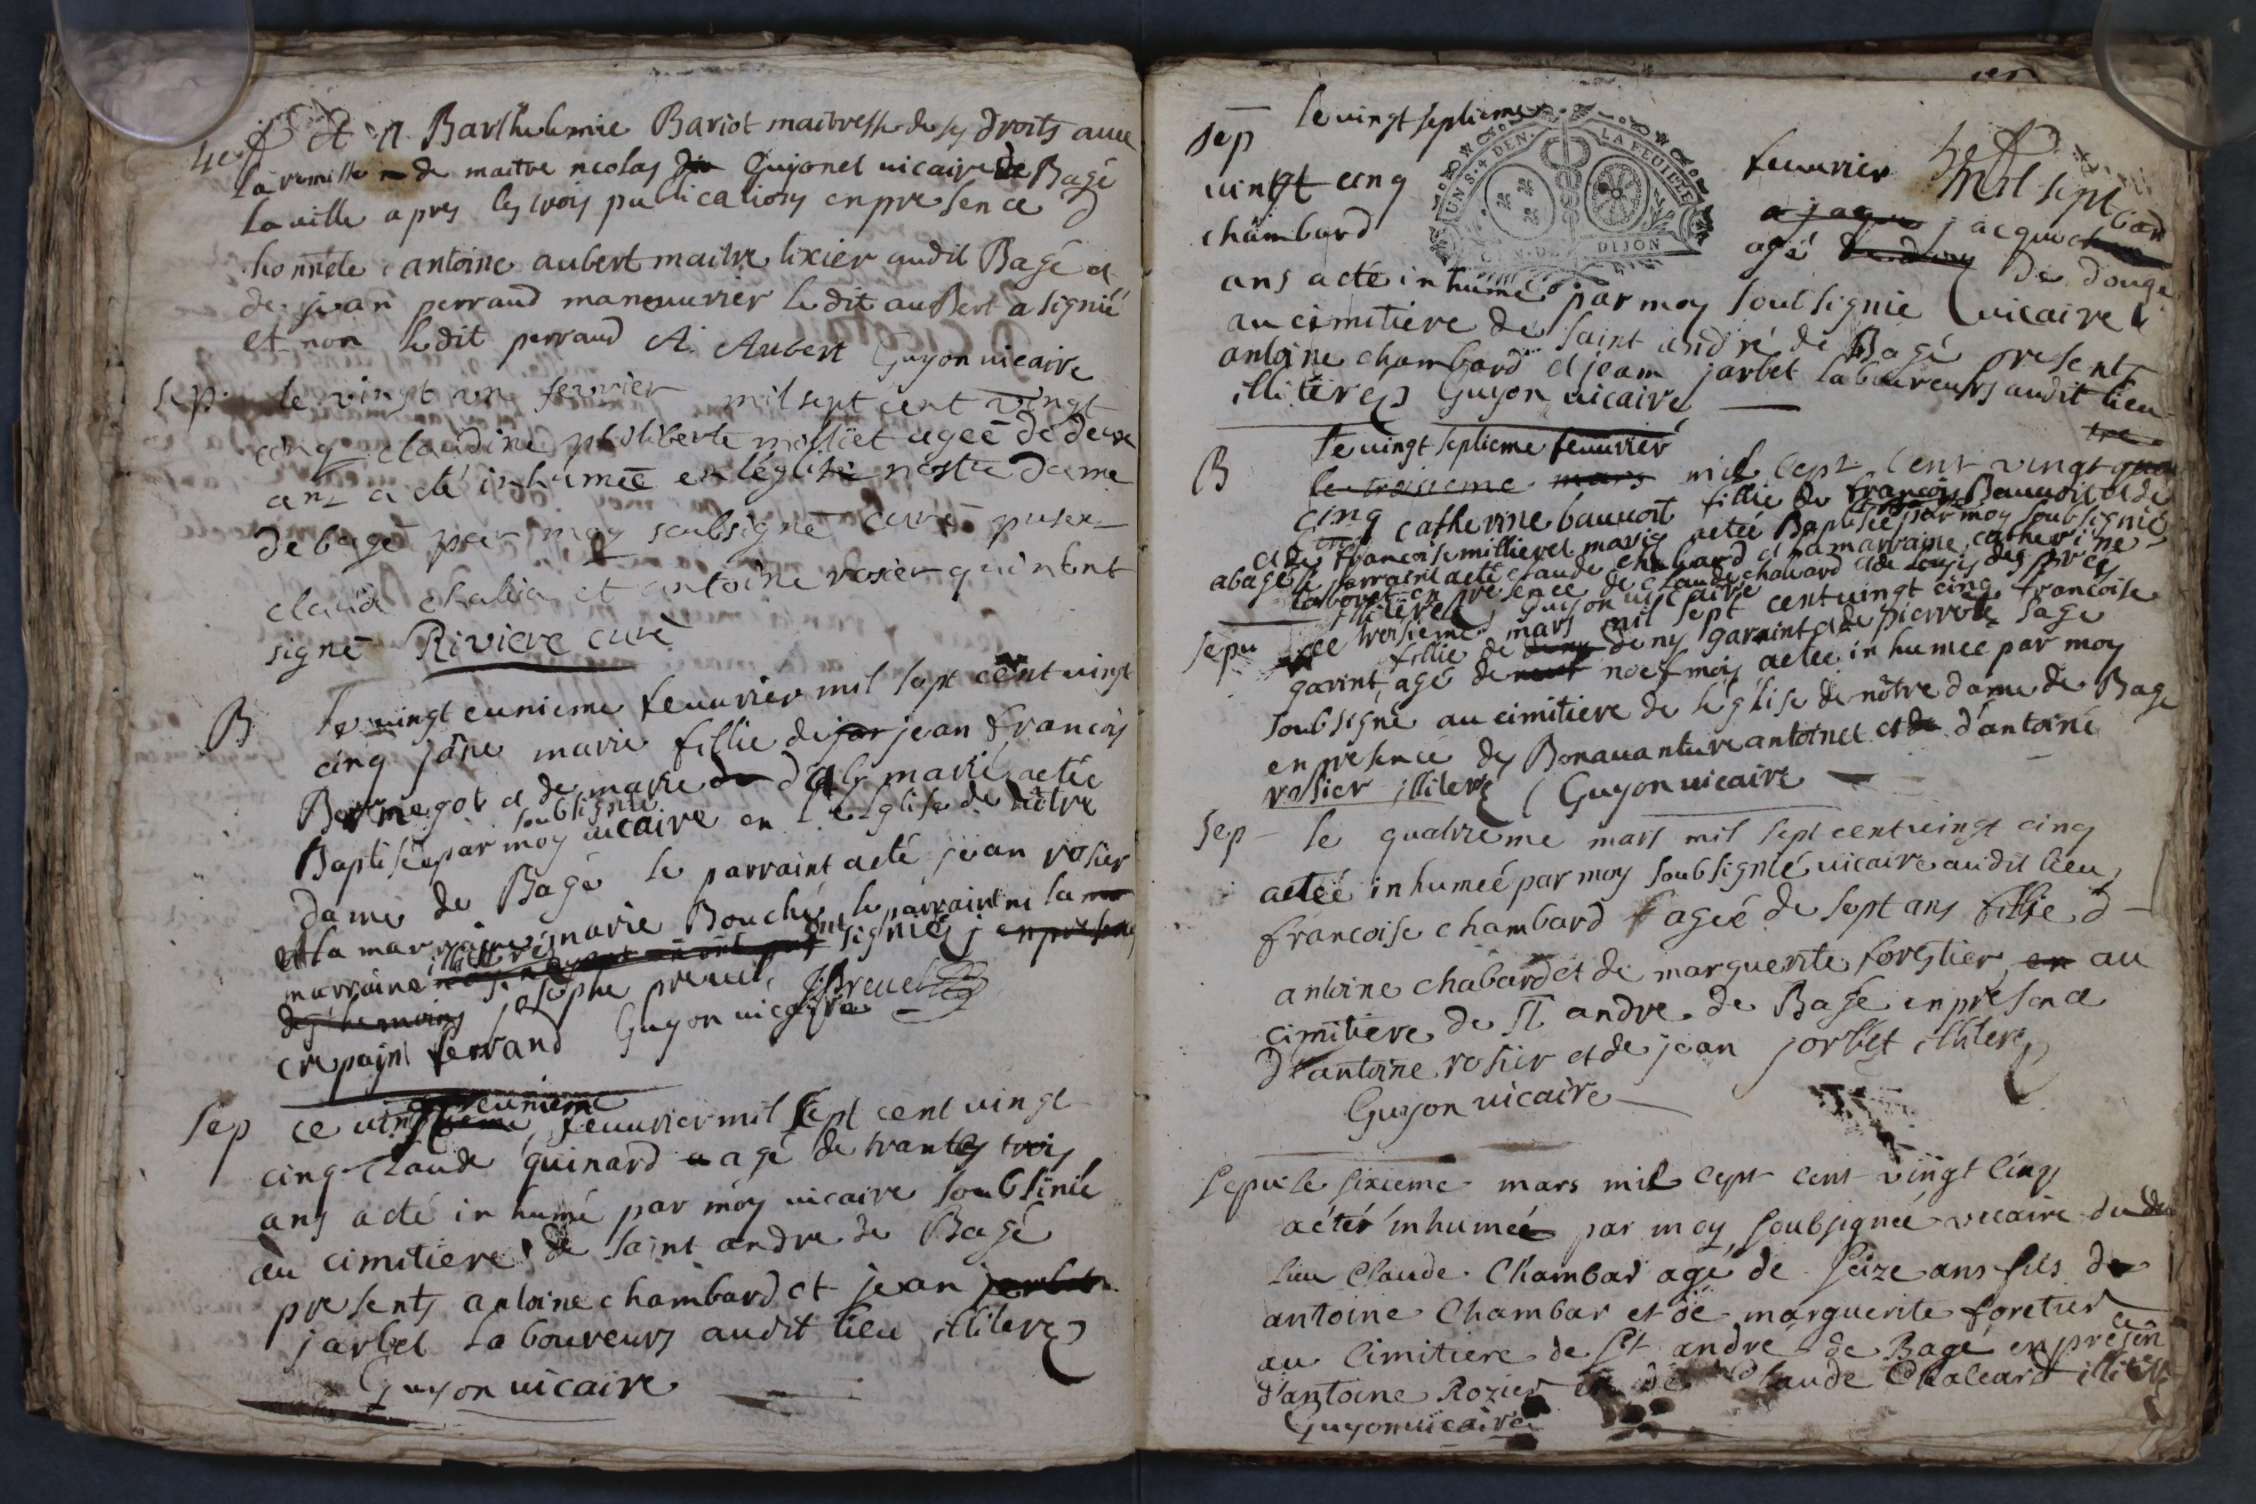 Et A Barthelemie Bariot maitresse de ses droits avec
la remisse de maitre nicolas Guyonet vicaire de Bagé
la ville apres les trois publications en presence d
honnete antoine aubert maitre tixier audit Bagé et
de jean perraud maneuvrier le dit aubert a signié
et non le dit perraud A. Aubert Guyon vicaire
sep. le vingt un fevrier mil sept cent vingt
cinq claudine philiberte agee de deux
ans a eté inhumée en léglise nostre dame
de bagé par moy soubsigne curé presen
claude chalea et antoine rosier qui n'ont
signé Riviere curé
B le vingt eunieme feuvrier mil sept cent vingt
cinq jane marie fillie de jar jean francois
Bornegot et de marie de marié aetée
soubsignié
Baptisée par moy vicaire en l'eglise de nôtre
dame de Bagé le parraint aeté jean rosier
et la marraine marie Bouché le parraint ni la
marraine signiés en presence
des themoins josephe preuel JPreuel
crepaint ferrand Guyon vicayre
eunieme
sep ce vingtieme feuvrier mil sept cent vingt
cinq Claude guinard agé de trantes trois
ans aeté inhumé par moy vicaire soubsinié
au cimitiere de saint andre de Bagé
presents antoine chambard et jean jarbet
jarbet laboureurs audit lieu illiteres
Guyon vicaire
UN S. 4 DEN. LA FEUILLE
GEN. DE DIJON
sep le vingt septieme feuvrier mil sept
vingt cinq jacque cham bar
chambard agé de douze
ans aeté inhumé par moy soubsignie vicaire
au cimitiere de saint andré de Bagé presents
antoine chambard et jean jarbet laboureurs audit lieu
illiteres Guyon vicaire
le vingt septieme feuvrier
B le troisieme mars mil sept cent vingt
cinq catherine bauvoit fillie de francois Bauvoit et de
et de francoise millieret mariés aetée Baptisée par moy soubsignié
abagé le parraint aeté claude chalard et la marraine catherine
en presence de claude chalard et de
illiteres Guyon vicaire
sepu ce troisieme mars mil sept cent vingt cinq francoise
fillie de deny garaint et de pierrete sage
garint, agé de neuf noef mois aetée inhumée par moy
soubsigné au cimitiere de léglise de nôtre dame de Bage
en presence de Bonavanture antoinet et de d'antoine
rosier illiteres Guyon vicaire
Sep le quatrieme mars mil sept cent vingt cinq
aetée inhumeé par moy soubsignié vicaire audit lieu
francoise chambard ageé de sept ans fillie d
antoine chabard et de marguerite forestier en au
cimitiere de st andre de Bagé en presence
d'antoine rosier et de jean jorbet illiteres
Guyon vicaire
Sepu le sixieme mars mil cept cent vingt cinq
aétér inhumée par moy soubsignée vicaire dudi
lieu Claude Chambar agé de seize ans fils de
antoine Chambar et de marguerite foretier
au Cimitiere de st andré de Bagé en presen ce
d'antoine Rozier et de Claude Chaleard
Guyon vicaire